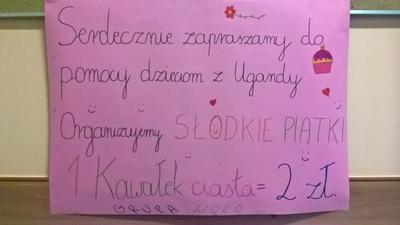 Serdecznie zapraszamy do
pomocy dzieciom z Ugandy
Organizujemy SŁODKIE PIĄTKI
1 Kawałek ciasta = 2 zł.
GRUPA